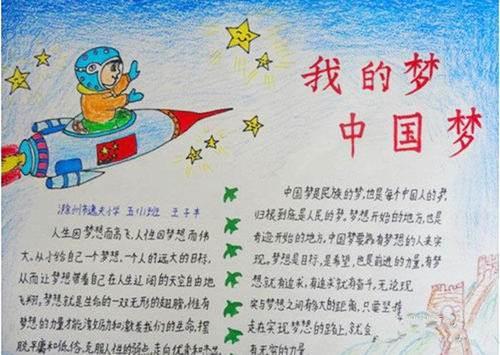 我的梦
中国梦
滁州市逸夫小学 五(1)班 王子丰
人生因梦想而高飞,人性因梦想而伟
大。从小给自己一个梦想,一个人的远大的目标,
从而让梦想带着自己在人生辽阔的天空自由地
飞翔,梦想就是生命的一双无形的翅膀,唯有
梦想的力量才能
我们的生命,摆
脱平庸和低俗,克服人性的弱点,走向优秀和杰
中国梦是民族的梦,也是每个中国人的梦,
归根到底是人民的梦,梦想开始的地方,也是
奇迹开始的地方,中国梦要靠有梦想的人来实
现。梦想是目标,是希望,也是前进的力量,有梦
想就有追求,有追求就有奋斗,无论现
实与梦想之间有多大的距离,只要坚持
走在实现梦想的路上,就会
有无穷的力量